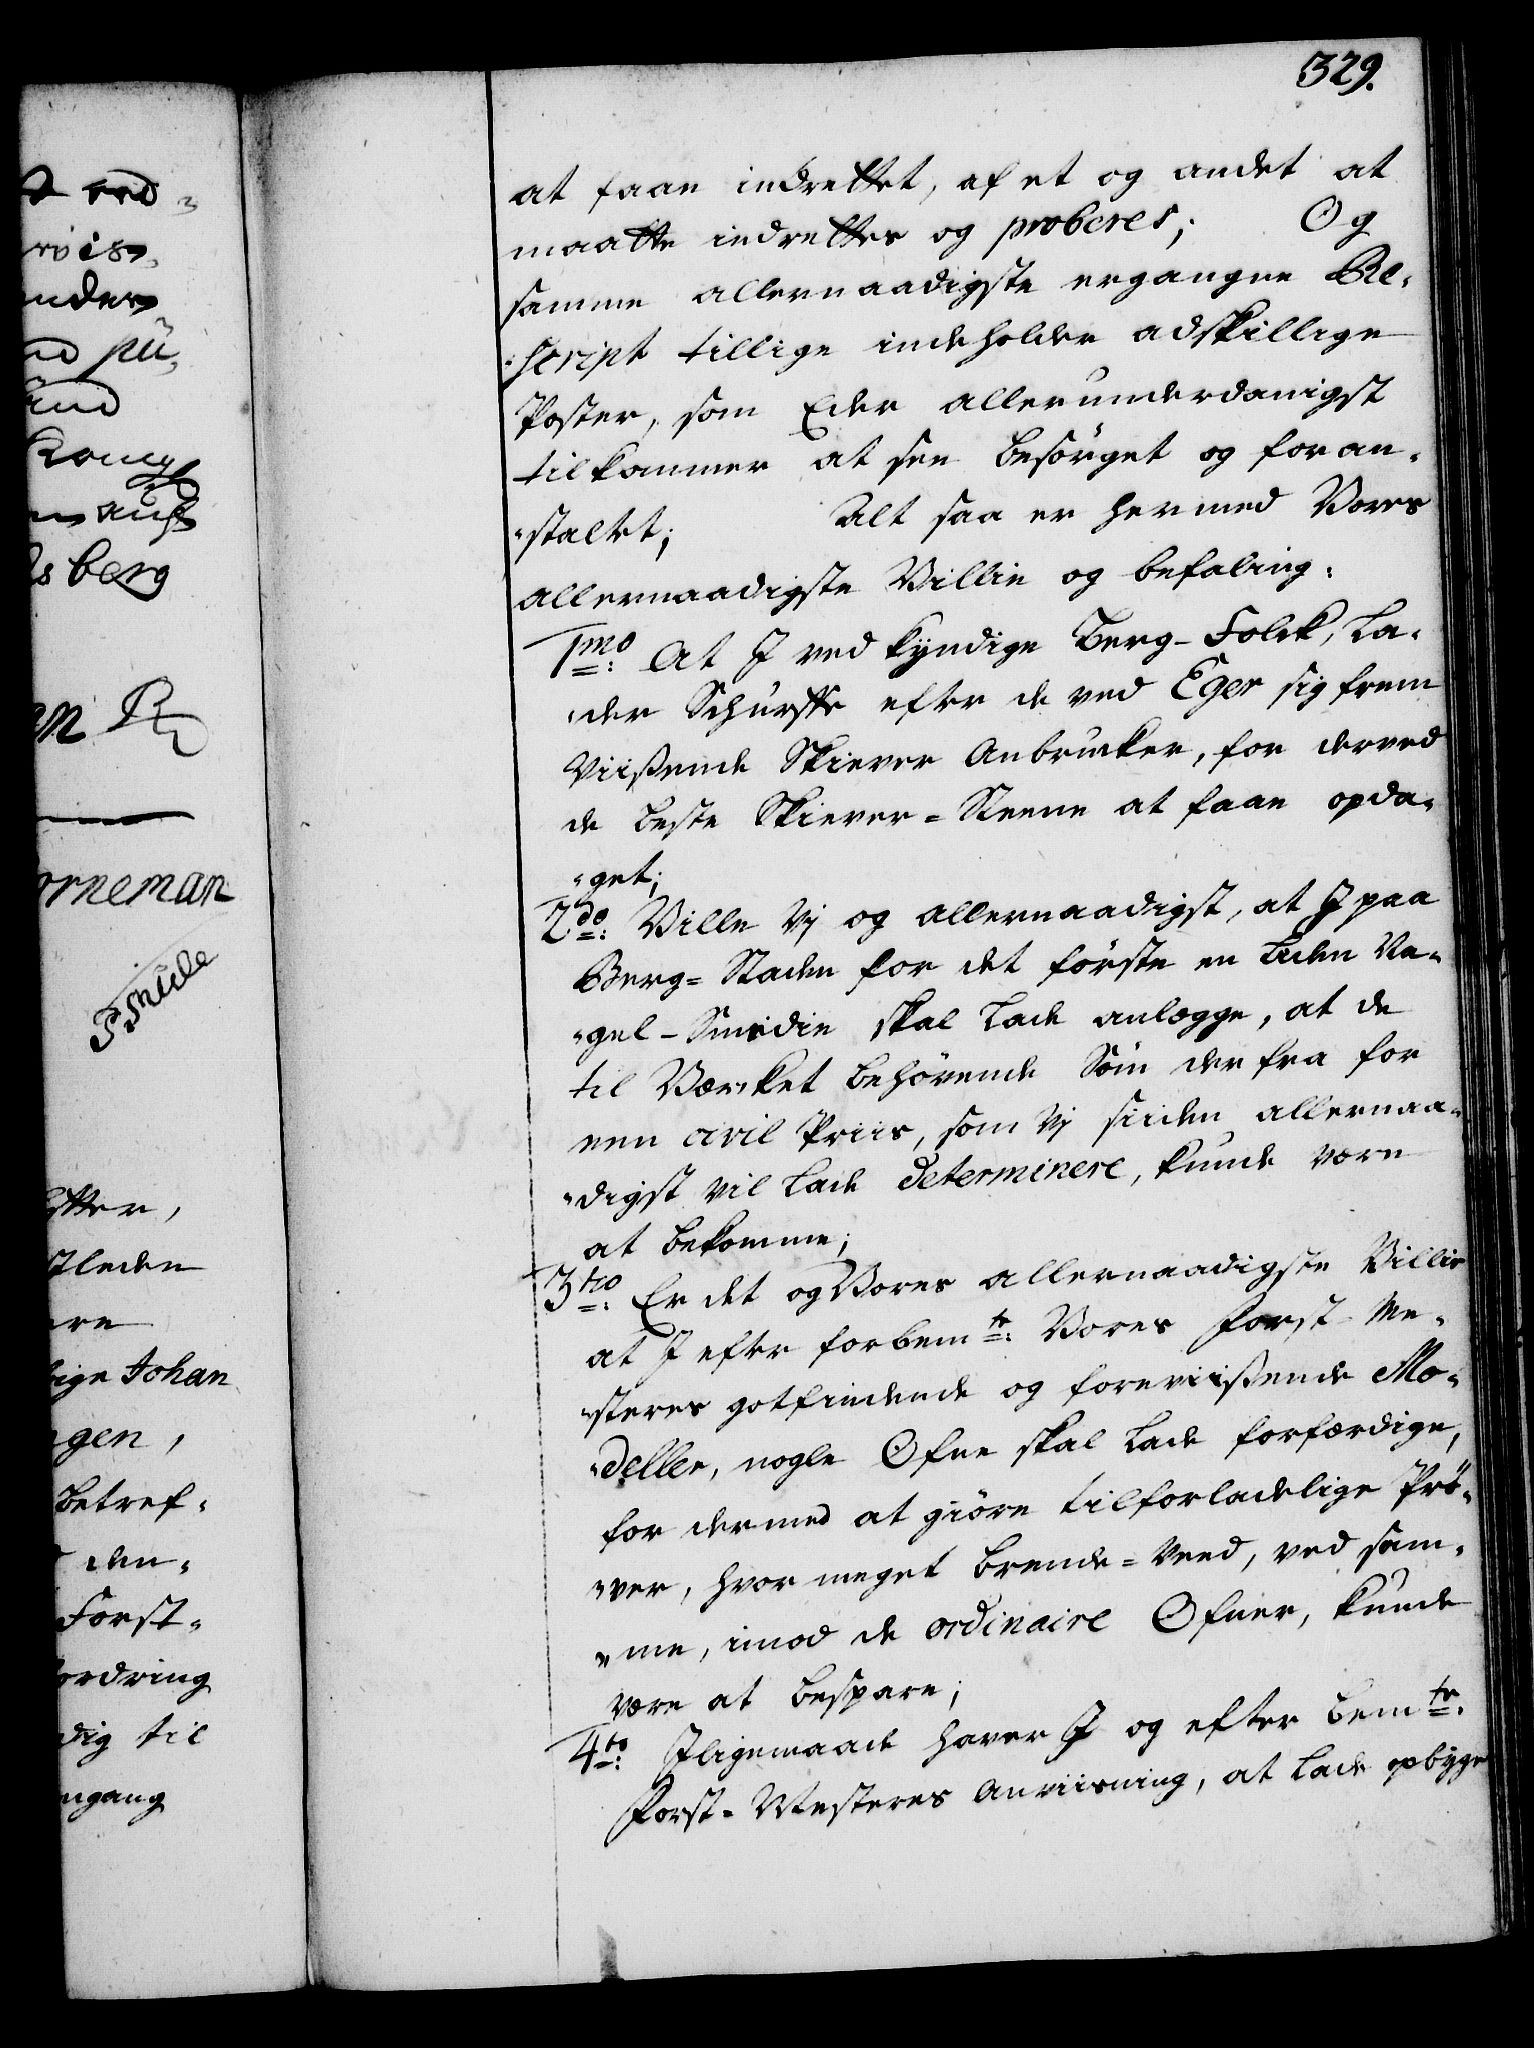 329.
at faae indrettet, af et og andet at
maatte indrettes og proberes; Og
samme allernaadigste ergangne Re-
"script tillige indeholder adskillige
Poster, som Eder allerunderdanigst
tilkommer at see besörget og foran-
"staltet; Alt saa er hermed Vores
allernaadigste Villie og befaling:
1mo: At I ved kyndige Berg-Folck, La-
"der Schurffe efter de ved Eger sig frem
Viisende Skiever Anbrücker, for derved
de beste Skiever=Steene at faae opda-
"get;
2do: Ville Vj og allernaadigst, at I paa
Berg=Staden for det förste en liden Na-
"gel-Smidie skal Lade anlægge, at de
til Værcket behövende Söm der fra for
een civil Priis, som Vj siiden allernaa-
"digst vil Lade determinere, kunde være
at bekomme;
3tio: Er det og Vores allernaadigste Villie
at I efter forbemte: Vores Forst-Me-
"steres gotfindende og foreviisende Mo-
"deller, nogle Ofne skal Lade forfærdige,
for dermed at giöre tilforladelige Prö-
"ver, hvor meget Brende=Veed, ved sam-
"me, imod de ordinaire Ofner, kunde
være at bespare;
4to: Iligemaade haver I og efter bemte:
Forst-Mesteres Anviisning, at Lade opbyge